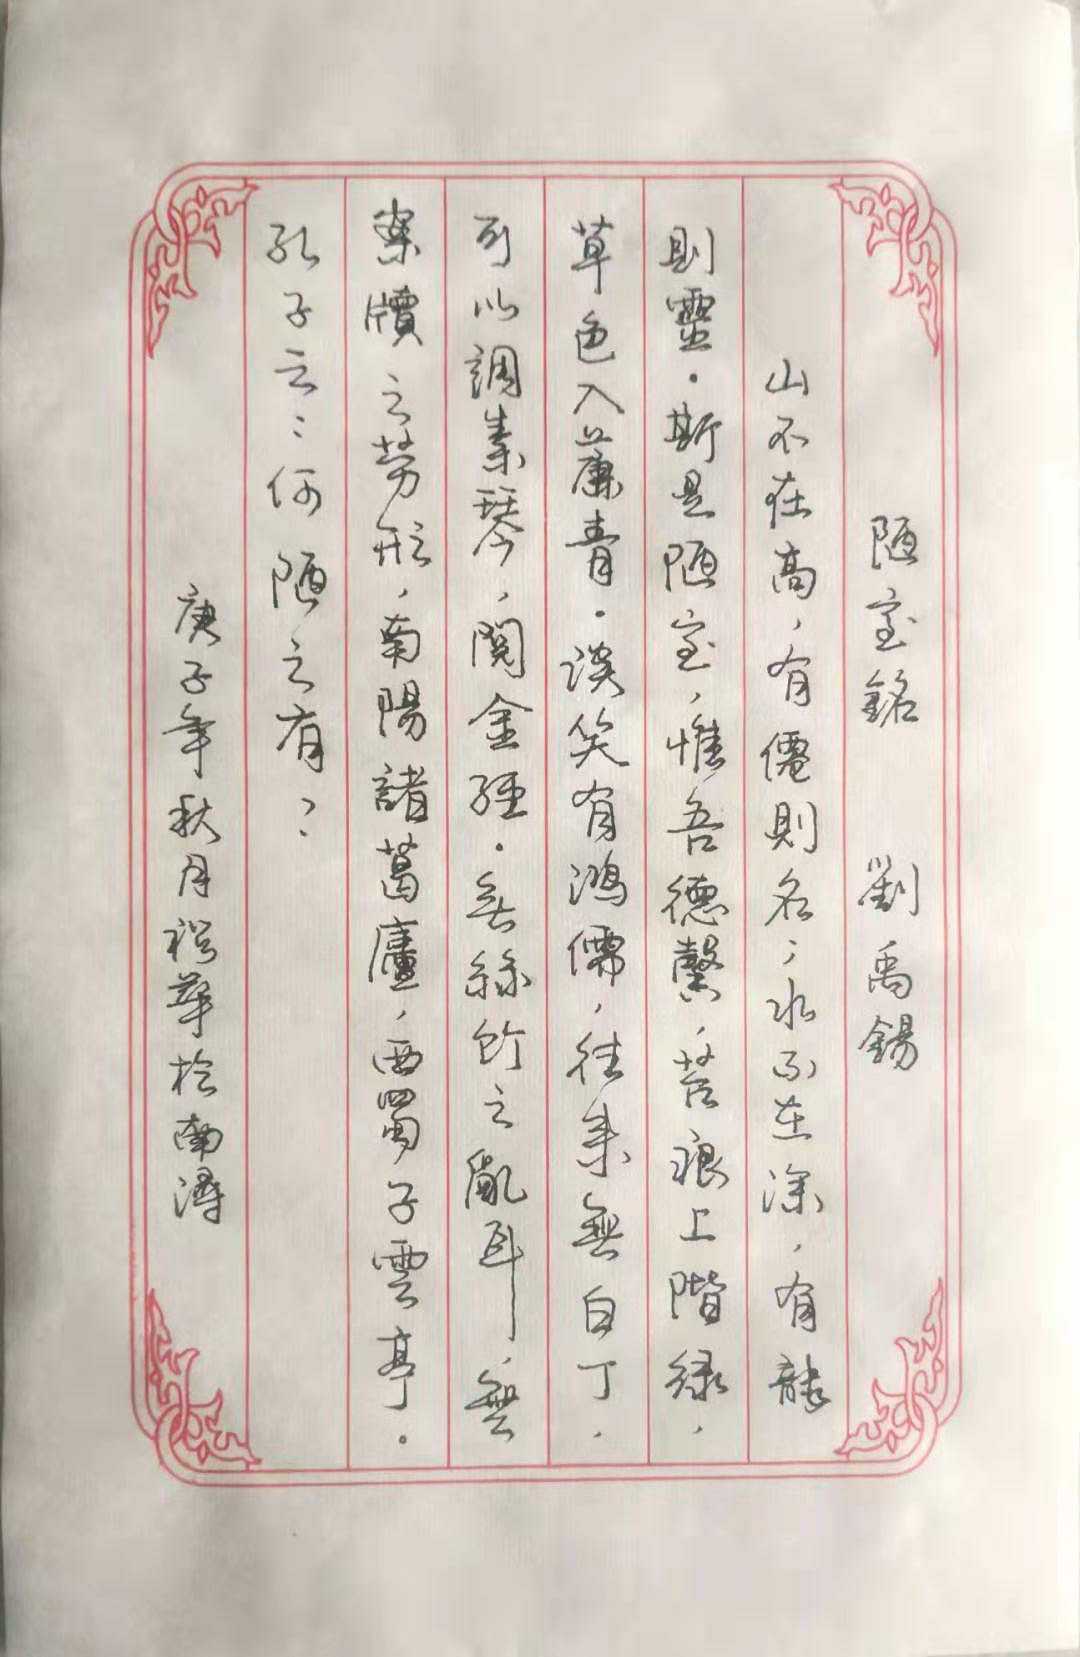 陋室銘 劉禹錫
山不在高，有僊則名；水不在深，有龍
則靈．斯是陋室，惟吾德馨，苔痕上階綠，
草色入簾青．談笑有鴻儒，往來無白丁．
可以調素琴，閱金經．無絲竹之亂耳，無
案牘之勞形，南陽諸葛廬，西蜀子雲亭。
孔子云：何陋之有？
庚子年秋月 華於南潯